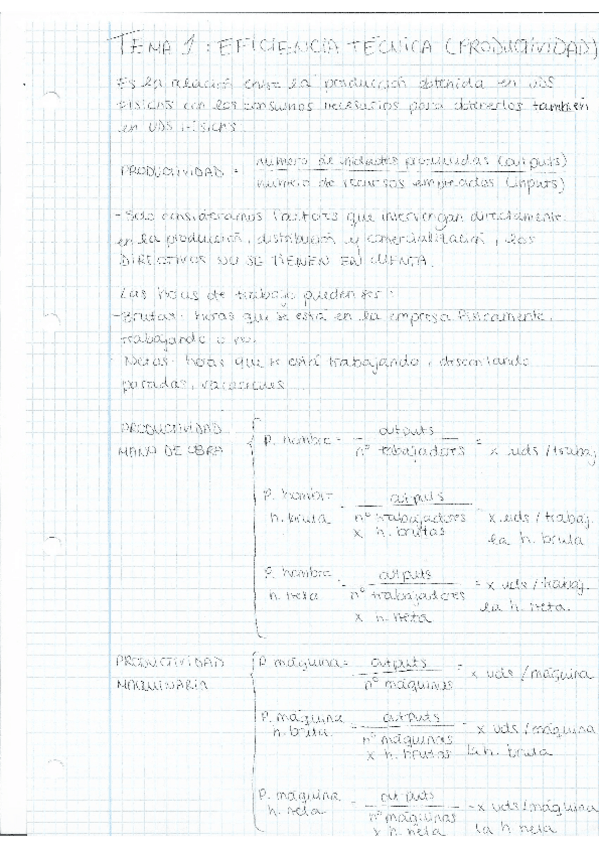 TEMA 1: EFICIENCIA TÉCNICA (PRODUCTIVIDAD)
Es la relación entre la producción obtenida en UDS
FÍSICAS con los consumos necesarios para obtenerlos también
en UDS FÍSICAS.
PRODUCTIVIDAD = número de unidades producidas (outputs)
número de recursos empleados (inputs)
- Solo consideramos factores que intervengan directamente
en la producción, distribución y comercialización, los
DIRECTIVOS NO SE TIENEN EN CUENTA.
Las horas de trabajo pueden ser:
- Brutas: horas que se está en la empresa físicamente,
trabajando o no.
- Netas: horas que se está trabajando, descontando
paradas, vacaciones
PRODUCTIVIDAD
MANO DE OBRA
P. hombre = outputs / nº trabajadores = x uds/trabaj
P. hombre h. bruta = outputs / nº trabajadores x h. brutas = x uds/trabaj. la h. bruta
P. hombre h. neta = outputs / nº trabajadores x h. neta = x uds/trabaj. la h. neta.
PRODUCTIVIDAD
MAQUINARIA
P. máquina = outputs / nº máquinas = x uds/máquina
P. máquina h. bruta = outputs / nº máquinas x h. brutas = x uds/máquina la h. bruta
P. máquina h. neta = outputs / nº máquinas x h. neta = x uds/máquina la h. neta